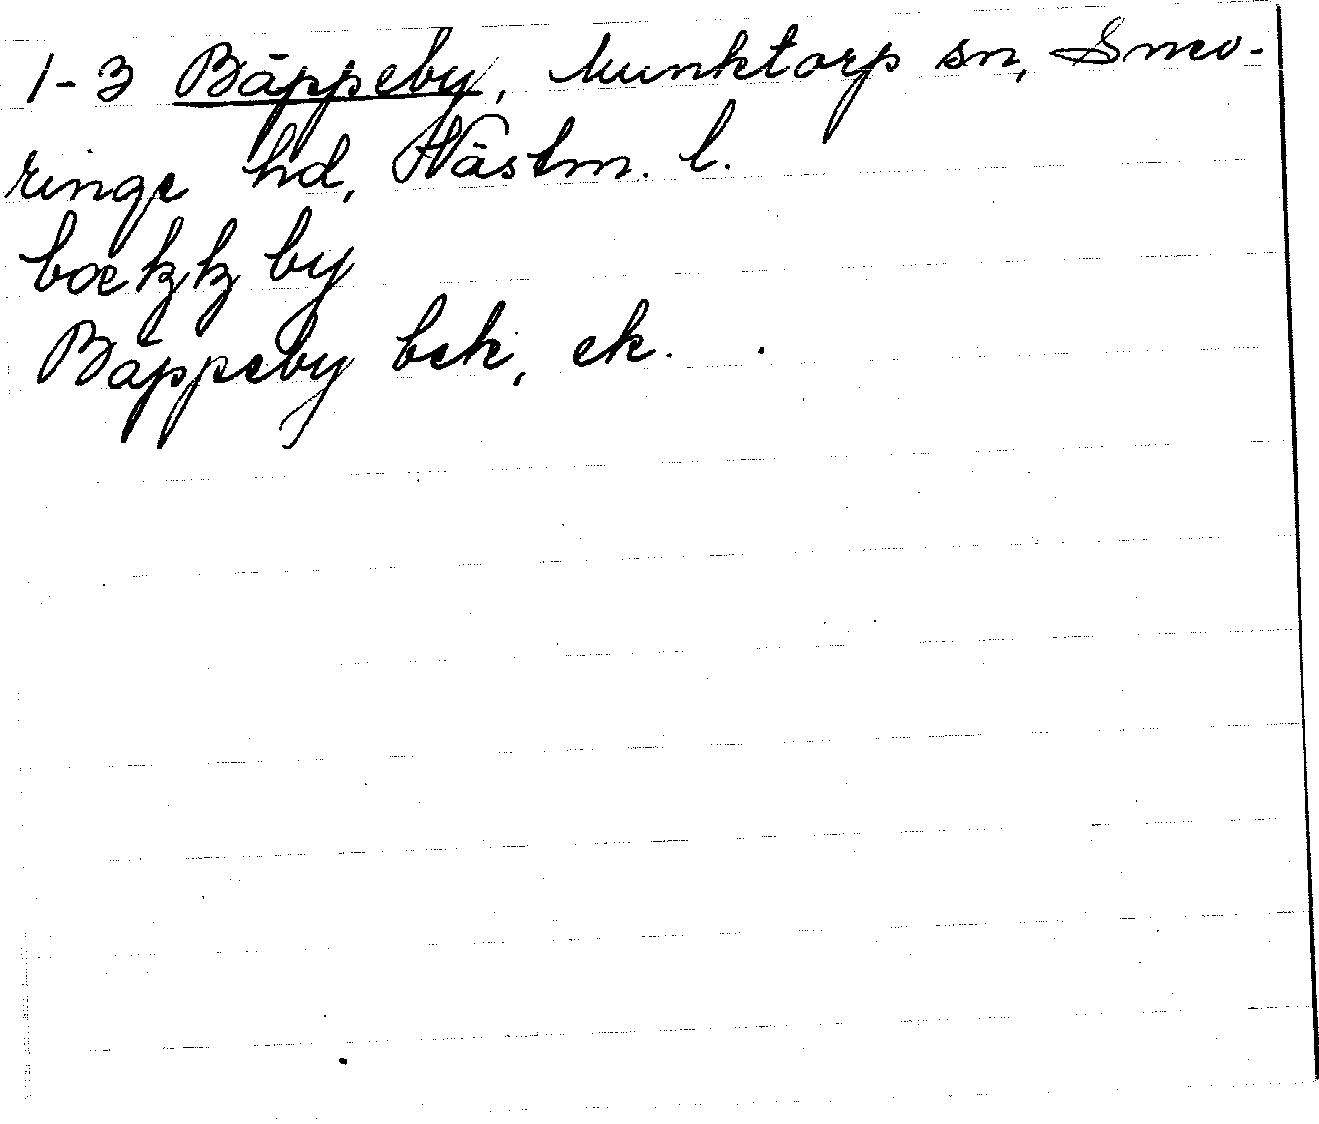 1-3 Bäppeby, Munktorp sn, Snev-
ringe hd, Västm. l.
Bäppeby bek, ek.